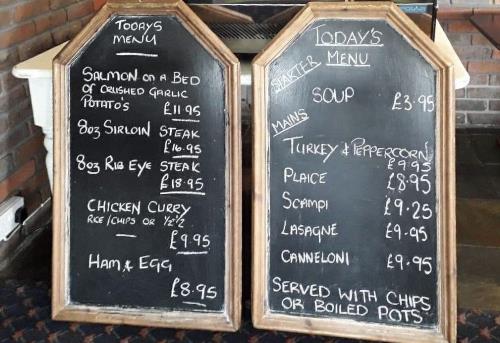 TODAYS
MENU
SALMON ON A BED
OF CRUSHED GARLIC
POTATO'S
£11.95
8oz SIRLOIN STEAK
£16.95
8oz RIB EYE STEAK
£18.95
CHICKEN CURRY
RICE/CHIPS OR ½-½
£9.95
HAM & EGG
£8.95
TODAY'S
MENU
STARTER
SOUP £3.95
MAINS
TURKEY & PEPPERCORN
£9.95
PLAICE £8.95
SCAMPI £9.25
LASAGNE £9.95
CANNELONI £9.95
SERVED WITH CHIPS
OR BOILED POTS